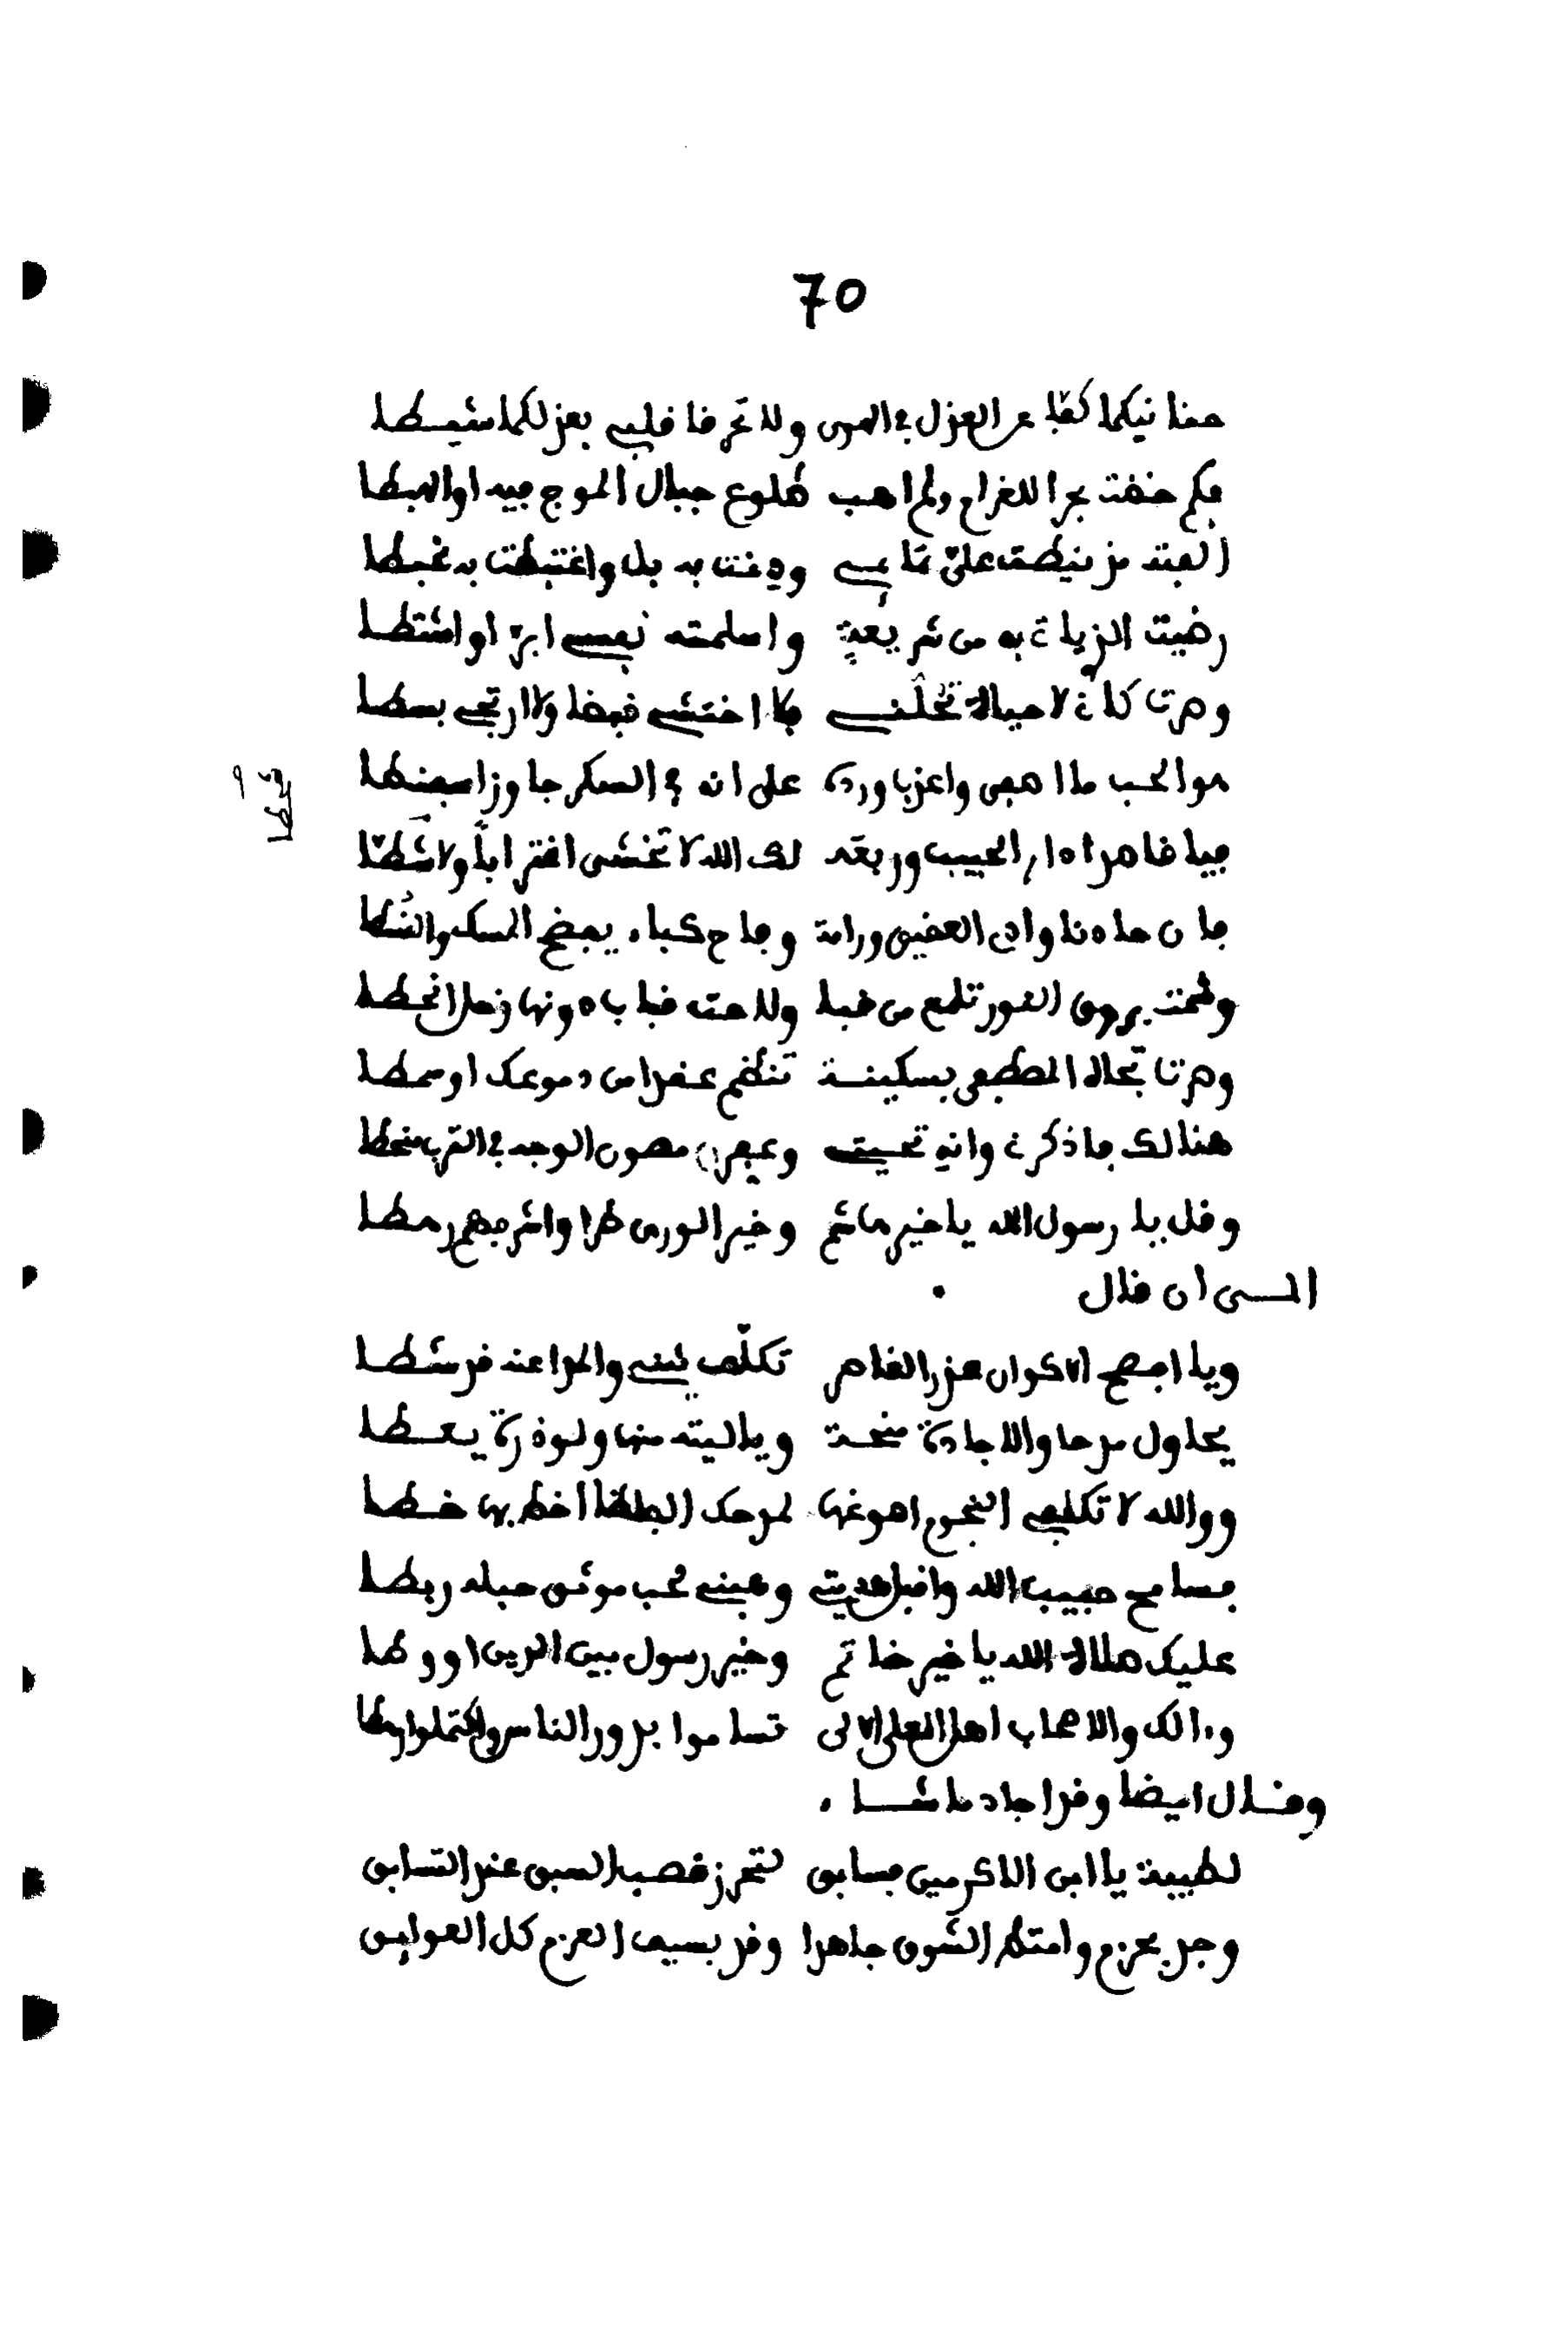 70
حنانيكما كفا عن العذل في الهوى ولا تحرقا قلبي بعذلكما شيطا
فكم خضت بحرا للغرام ولم اهب طلوع جبال الموج فيه او الهبطا
الفته مذ نيطت علي تمائمي ودنت به بل واغتبطت به غبطا
رضيت الزيادة به من شريعة واسلمته نفسي ابر او اشتطا
وصرت كأن لا حيالة تحلني فلا اختشي قبضا ولا ارتجي بسطا
هو الحب ما اصفى واعذب اورده على انه في السكر جاوز اسفنطا
فيا قاصدا دار الحبيب وربعه لك الله لا تخشى اغترابا ولا شطا
فان حاد نا وادي العقيق ورامة وفاح كباء يفضح المسك والقسطا
وشمت بروق الغور تلمع من قبا ولاحت قباب دونها زحل انحطا
وصرت تجاه المصطفى بسكينة تنظم عقدا من دموعك او سمطا
هنالك فاذكرني وانه تحيتي وعفرن مصون الوجه في الترب منحطا
وقل يا رسول الله يا خير هاشم وخير الورى طرا واشرفهم رهطا
الى ان قال
ويا افصح الاكوان عذرا لقاصر تكلف ليثني والحرا عنه قد شطا
يحاول مدحا والاجادة منحة ويا ليته منها ولو ذرة يعطا
ووالله لا تكفي النجوم اصوغها لمدحك الفاظا اخط بها خطا
فسامح حبيب الله واقبل هديتي وهبني لحب موثق حبله ربطا
عليك صلاة الله يا خير خاتم وخير رسول بين الدين او وطا
وءالك والاصحاب اهل العلى الالى تساموا بدور الناس واكتملوا رهطا
وقال ايضا وقد اجاد ما شا
لطيبة يا ابن الاكرمين فسابق لتحرز قصب السبق عند التسابق
وجد بحزم وامتط الشوق جاهدا وقد بسيف العزم كل العوايق